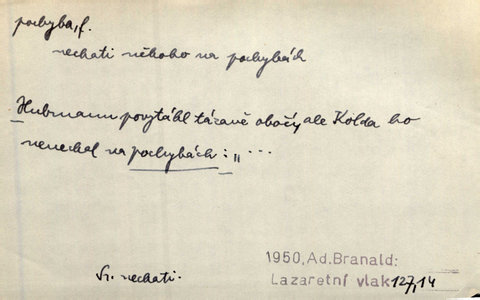 pochyba, f.
nechati někoho na pochybách
Hubmann povytáhl tázavě obočí, ale Kolda ho
nenechal na pochybách: „ ...
Sr. nechati.
1950, Ad. Branald:
Lazaretní vlak 127,14